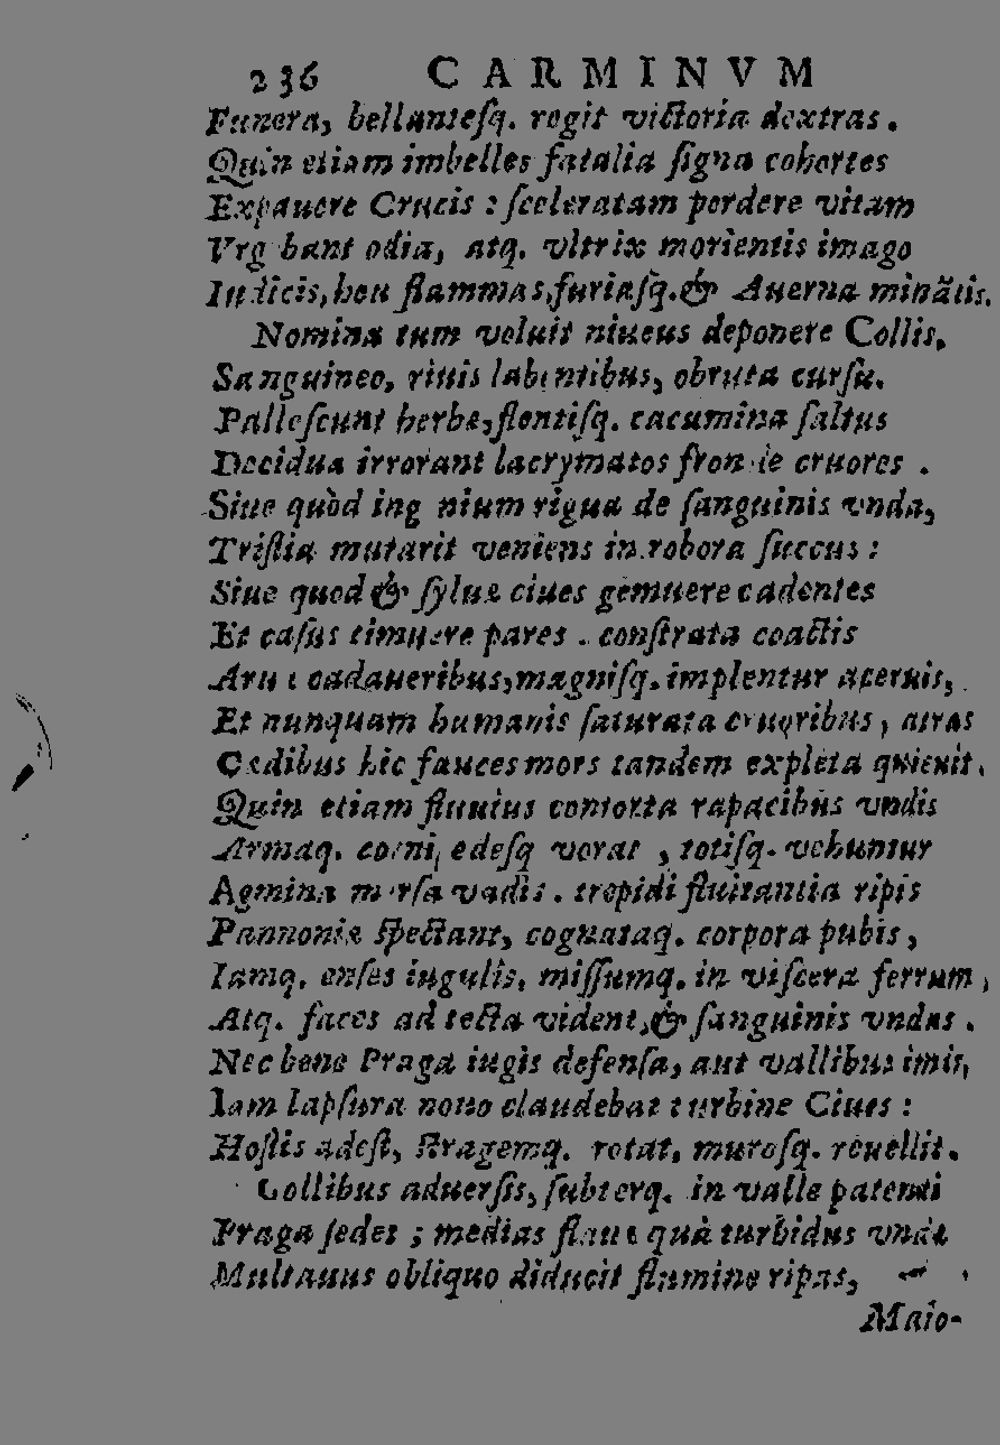 236 CARMINVM
Funera, bellantesq. regit victoria dextras.
Quin etiam imbelles fatalia signa cohortes
Expauere Crucis: sceleratam perdere vitam
Vrgebant odia, atq. vltrix morientis imago
Iudicis, heu flammas, furiasq. & Auerna minãtis.
Nomina tum voluit niueus deponere Collis,
Sanguineo, riuis labentibus, obruta cursu.
Pallescunt herbæ, flentisq. cacumina saltus
Decidua irrorant lacrymatos fronde cruores.
Siue quòd ingenium rigua de sanguinis vnda,
Tristia mutarit veniens in robora succus:
Siue quod & syluæ ciues gemuere cadentes
Et casus timuere pares. constrata coactis
Arua cadaueribus, magnisq. implentur aceruis,
Et nunquam humanis saturata cruoribus, atras
Cædibus hic fauces mors tandem expleta quieuit.
Quin etiam fluuius contorta rapacibus vndis
Armaq. cornipedesq vorat, totisq. vehuntur
Agmina mersa vadis. trepidi fluitantia ripis
Pannoniæ spectant, cognataq. corpora pubis,
Iamq. enses iugulis, missumq. in viscera ferrum,
Atq. faces ad tecta vident, & sanguinis vndas.
Nec bene Praga iugis defensa, aut vallibus imis,
Iam lapsura nouo claudebat turbine Ciues:
Hostis adest, stragemq. rotat, murosq. reuellit.
Collibus aduersis, subterq. in valle patenti
Praga sedet; medias flauæ quà turbidus vndæ
Multauus obliquo diducit flumine ripas,
Maio-